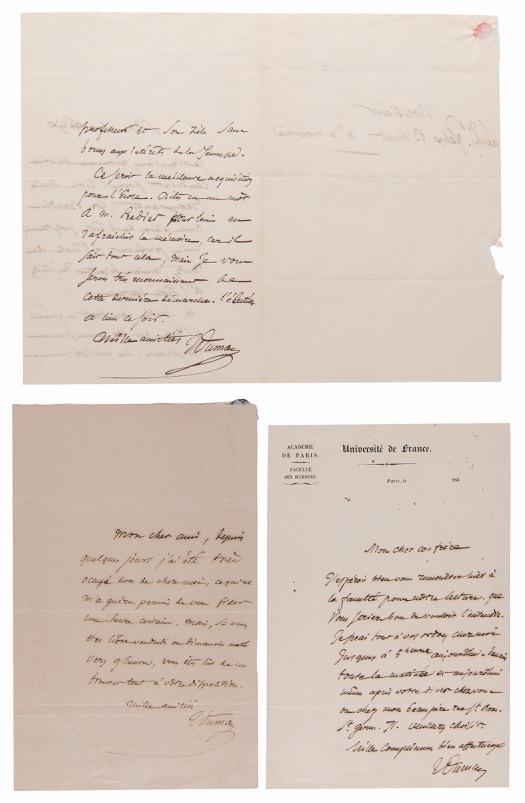 professeur et son zèle sans
bornes aux intérêts de la
Ce serait la meilleure acquisition
pour l'École. Dites en un mot
à M. pour lui en
rafraîchir la mémoire, car il
sait tout cela, mais je vous
serais très reconnaissant de
cette dernière démarche. L'élection
a lieu ce soir.
Mille amitiés Dumas
Mon cher ami, depuis
quelques jours j'ai été très
occupé hors de chez moi, ce qui ne
m'a guère permis de vous fixer
une heure certaine. Mais, si vous
êtes libre vendredi ou dimanche
vers 9 heures, vous êtes sûr de me
trouver tout à votre disposition.
Mille amitiés
Dumas
ACADÉMIE
DE PARIS.
FACULTÉ
DES SCIENCES.
Université de France.
Paris, le 184
Mon cher confrère
J'espérais bien vous rencontrer hier à
la faculté pour notre lecture, que
vous seriez bon de vouloir l'entendre.
Je serai tout à vos ordres chez moi
jusques à 5 heures aujourd'hui
toute la matinée et aujourd'hui
même après votre dîner chez vous
ou chez mon beaupère rue St. Dom.
St. Germ. Veuillez choisir.
Mille complimens bien affectueux
Dumas